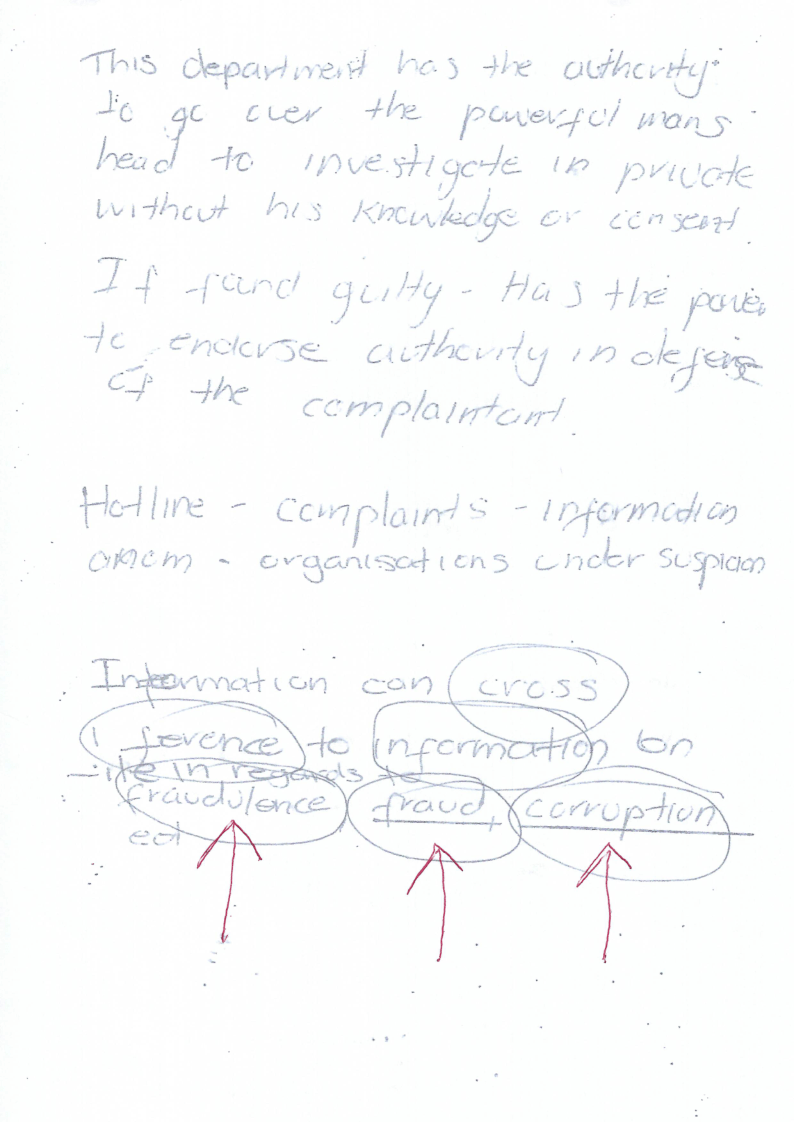 This department has the authority
to go over the powerful mans
head to investigate in private
without his knowledge or consent.
If found guilty - Has the power
to endorse authority in defense
of the complaintant.
Hotline - complaints - information
- organisations under suspicion
Information can cross
ference to information on
in regards to
fraudulence fraud, corruption
ect